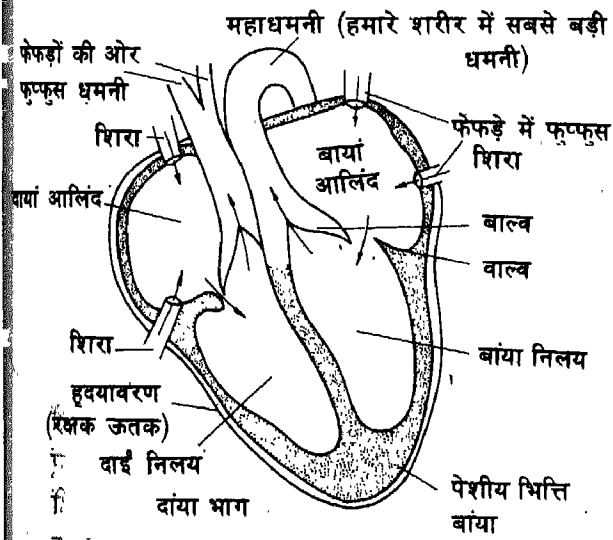 महाधमनी (हमारे शरीर में सबसे बड़ी
धमनी)
फेफड़ों की ओर
फुप्फुस धमनी
शिरा
फेफड़े में फुप्फुस
शिरा
बायां
आलिंद
दायां आलिंद
बाल्व
वाल्व
शिरा
बांया निलय
हृदयावरण
(रक्षक ऊतक)
दाईं निलय
दांया भाग
पेशीय भित्ति
बांया